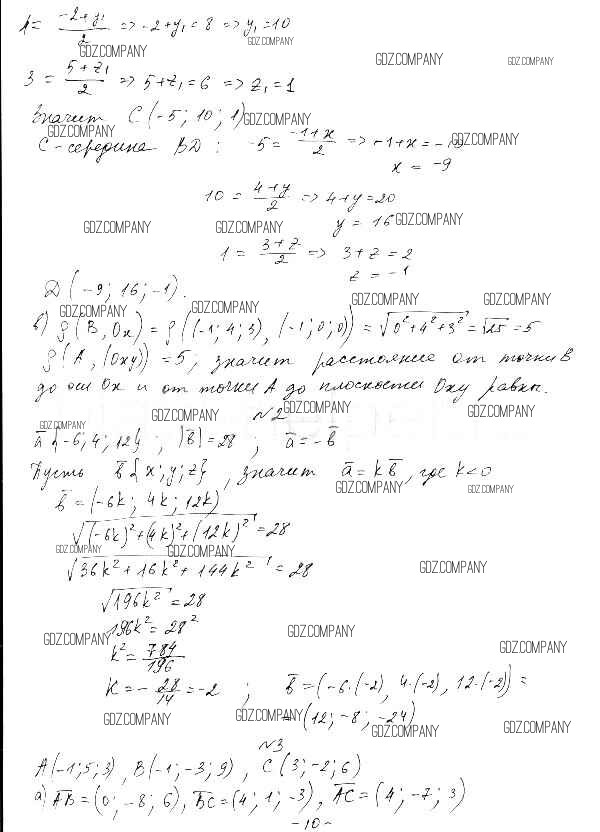 4 = (-2+y₁)/2 => -2+y₁=8 => y₁=10
GDZ.COMPANY GDZ.COMPANY GDZ.COMPANY GDZ.COMPANY
3 = (5+z₁)/2 => 5+z₁=6 => z₁=1
Значит C(-5; 10; 1) GDZ.COMPANY
GDZ.COMPANY
C-середина BD: -5 = (-1+x)/2 => -1+x = - GDZ.COMPANY
x = -9
10 = (4+y)/2 => 4+y=20
y = 16 GDZ.COMPANY
GDZ.COMPANY GDZ.COMPANY
1 = (3+z)/2 => 3+z=2
z = -1
D(-9; 16; -1).
GDZ.COMPANY GDZ.COMPANY GDZ.COMPANY GDZ.COMPANY
б) ρ(B, Ox) = ρ((-1; 4; 3), (-1; 0; 0)) = √(0²+4²+3²) = √25 = 5
ρ(A, (Oxy)) = 5, значит расстояние от точки B
до оси Ox и от точки A до плоскости Oxy равны.
№2
GDZ.COMPANY GDZ.COMPANY GDZ.COMPANY GDZ.COMPANY
a̅{-6; 4; 12}, |b̅|=28, a̅=-b̅
Пусть b̅{x; y; z}, значит a̅=kb̅, где k<0
GDZ.COMPANY GDZ.COMPANY
b̅=(-6k; 4k; 12k)
√((-6k)²+(4k)²+(12k)²)=28
GDZ.COMPANY GDZ.COMPANY
√(36k²+16k²+144k²)=28
GDZ.COMPANY
√(196k²)=28
196k²=28²
GDZ.COMPANY GDZ.COMPANY GDZ.COMPANY
k²=784/196
k=-28/14=-2; b̅=(-6·(-2), 4·(-2), 12·(-2))=
=(12; -8; -24)
GDZ.COMPANY GDZ.COMPANY GDZ.COMPANY GDZ.COMPANY
№3
A(-1; 5; 3), B(-1; -3; 9), C(3; -2; 6)
а) A̅B̅=(0; -8; 6), B̅C̅=(4; 1; -3), A̅C̅=(4; -7; 3)
-10-